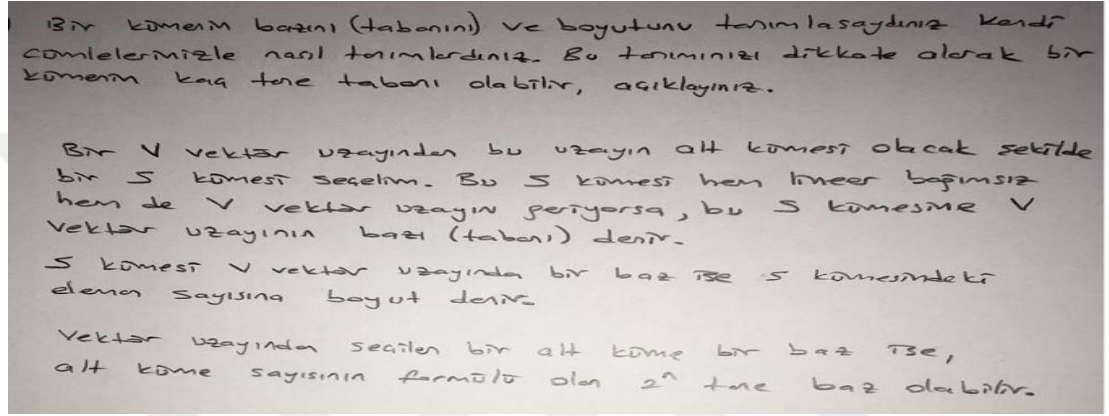 Bir kümenin bazını (tabanını) ve boyutunu tanımlasaydınız kendi
cümlelerinizle nasıl tanımlardınız. Bu tanımınızı dikkate alarak bir
kümenin kaç tane tabanı olabilir, açıklayınız.
Bir V vektör uzayından bu uzayın alt kümesi olacak şekilde
bir S kümesi seçelim. Bu S kümesi hem lineer bağımsız
hem de V vektör uzayın geriyorsa, bu S kümesine V
vektör uzayının bazı (tabanı) denir.
S kümesi V vektör uzayında bir baz ise S kümesindeki
eleman sayısına boyut denir.
Vektör uzayından seçilen bir alt küme bir baz ise,
alt küme sayısının formülü olan 2ⁿ tane baz olabilir.